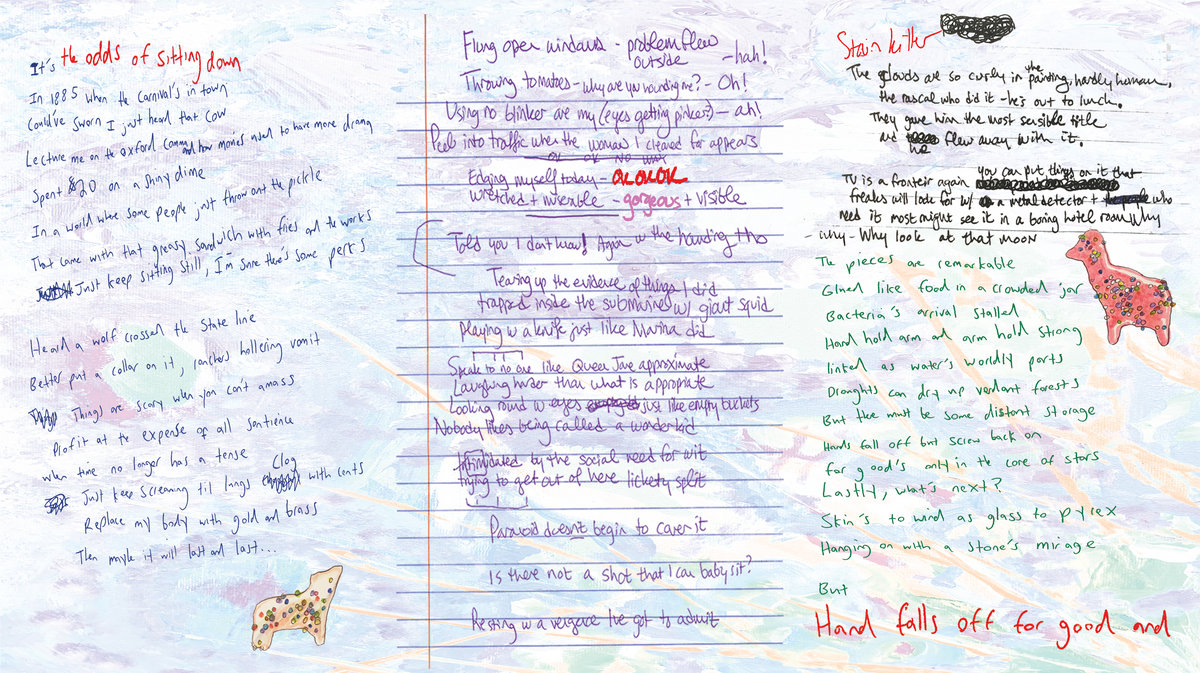 It's the odds of sitting down
In 1885 when the Carnival's in town
Could've sworn I just heard that cow
Lecture me on the oxford comma and how movies used to have more drama
Spent $20 on a shiny dime
In a world where some people just throw out the pickle
That came with that greasy sandwich with fries and the works
Just keep sitting still, I'm sure there's some perks
Heard a wolf crossed the State line
Better put a collar on it, ranchers hollering vomit
Things are scary when you can't amass
Profit at the expense of all sentience
When time no longer has a tense
Just keep screaming til lungs clog with cents
Replace my body with gold and brass
Then maybe it will last and last...
Flung open windows - problem flew outside - hah!
Throwing tomatoes - why are you hounding me? - Oh!
Using no blinker are my (eyes getting pinker) - ah!
Peel into traffic when the woman I cleared for appears
OK OK NO WAY
Edging myself today - OKOKOK
wretched + miserable - gorgeous + visible
Told you I don't know! Again w the hounding tho
Tearing up the evidence of things I did
trapped inside the submarine w/ giant squid
Playing w a knife just like Marina did
Speak to no one like Queen Jane approximate
Laughing harder than what is appropriate
Looking round w eyes just like empty buckets
Nobody likes being called a wonderkid
Intimidated by the social need for wit
trying to get out of here lickety split
Paranoid doesn't begin to cover it
Is there not a shot that I can baby sit?
Resting in a vengance I've got to admit
Stain killer
The clouds are so curly in the painting, hardly human,
the rascal who did it - he's out to lunch.
They gave him the most sensible title
and he flew away with it.
TV is a fronteir again you can put things on it that
freaks will look for w/ a metal detector + who
need it most might see it in a boring hotel room, why
- why - Why look at that moon
The pieces are remarkable
Glued like food in a crowded jar
Bacteria's arrival stalled
Hand hold arm and arm hold strong
linked as water's worldly ports
Droughts can dry up verdant forests
But thee must be some distant storage
Hands fall off but screw back on
for good's only in the core of stars
Lastly, what's next?
Skin's to wind as glass to pyrex
Hanging on with a stone's mirage
But
Hand falls off for good and